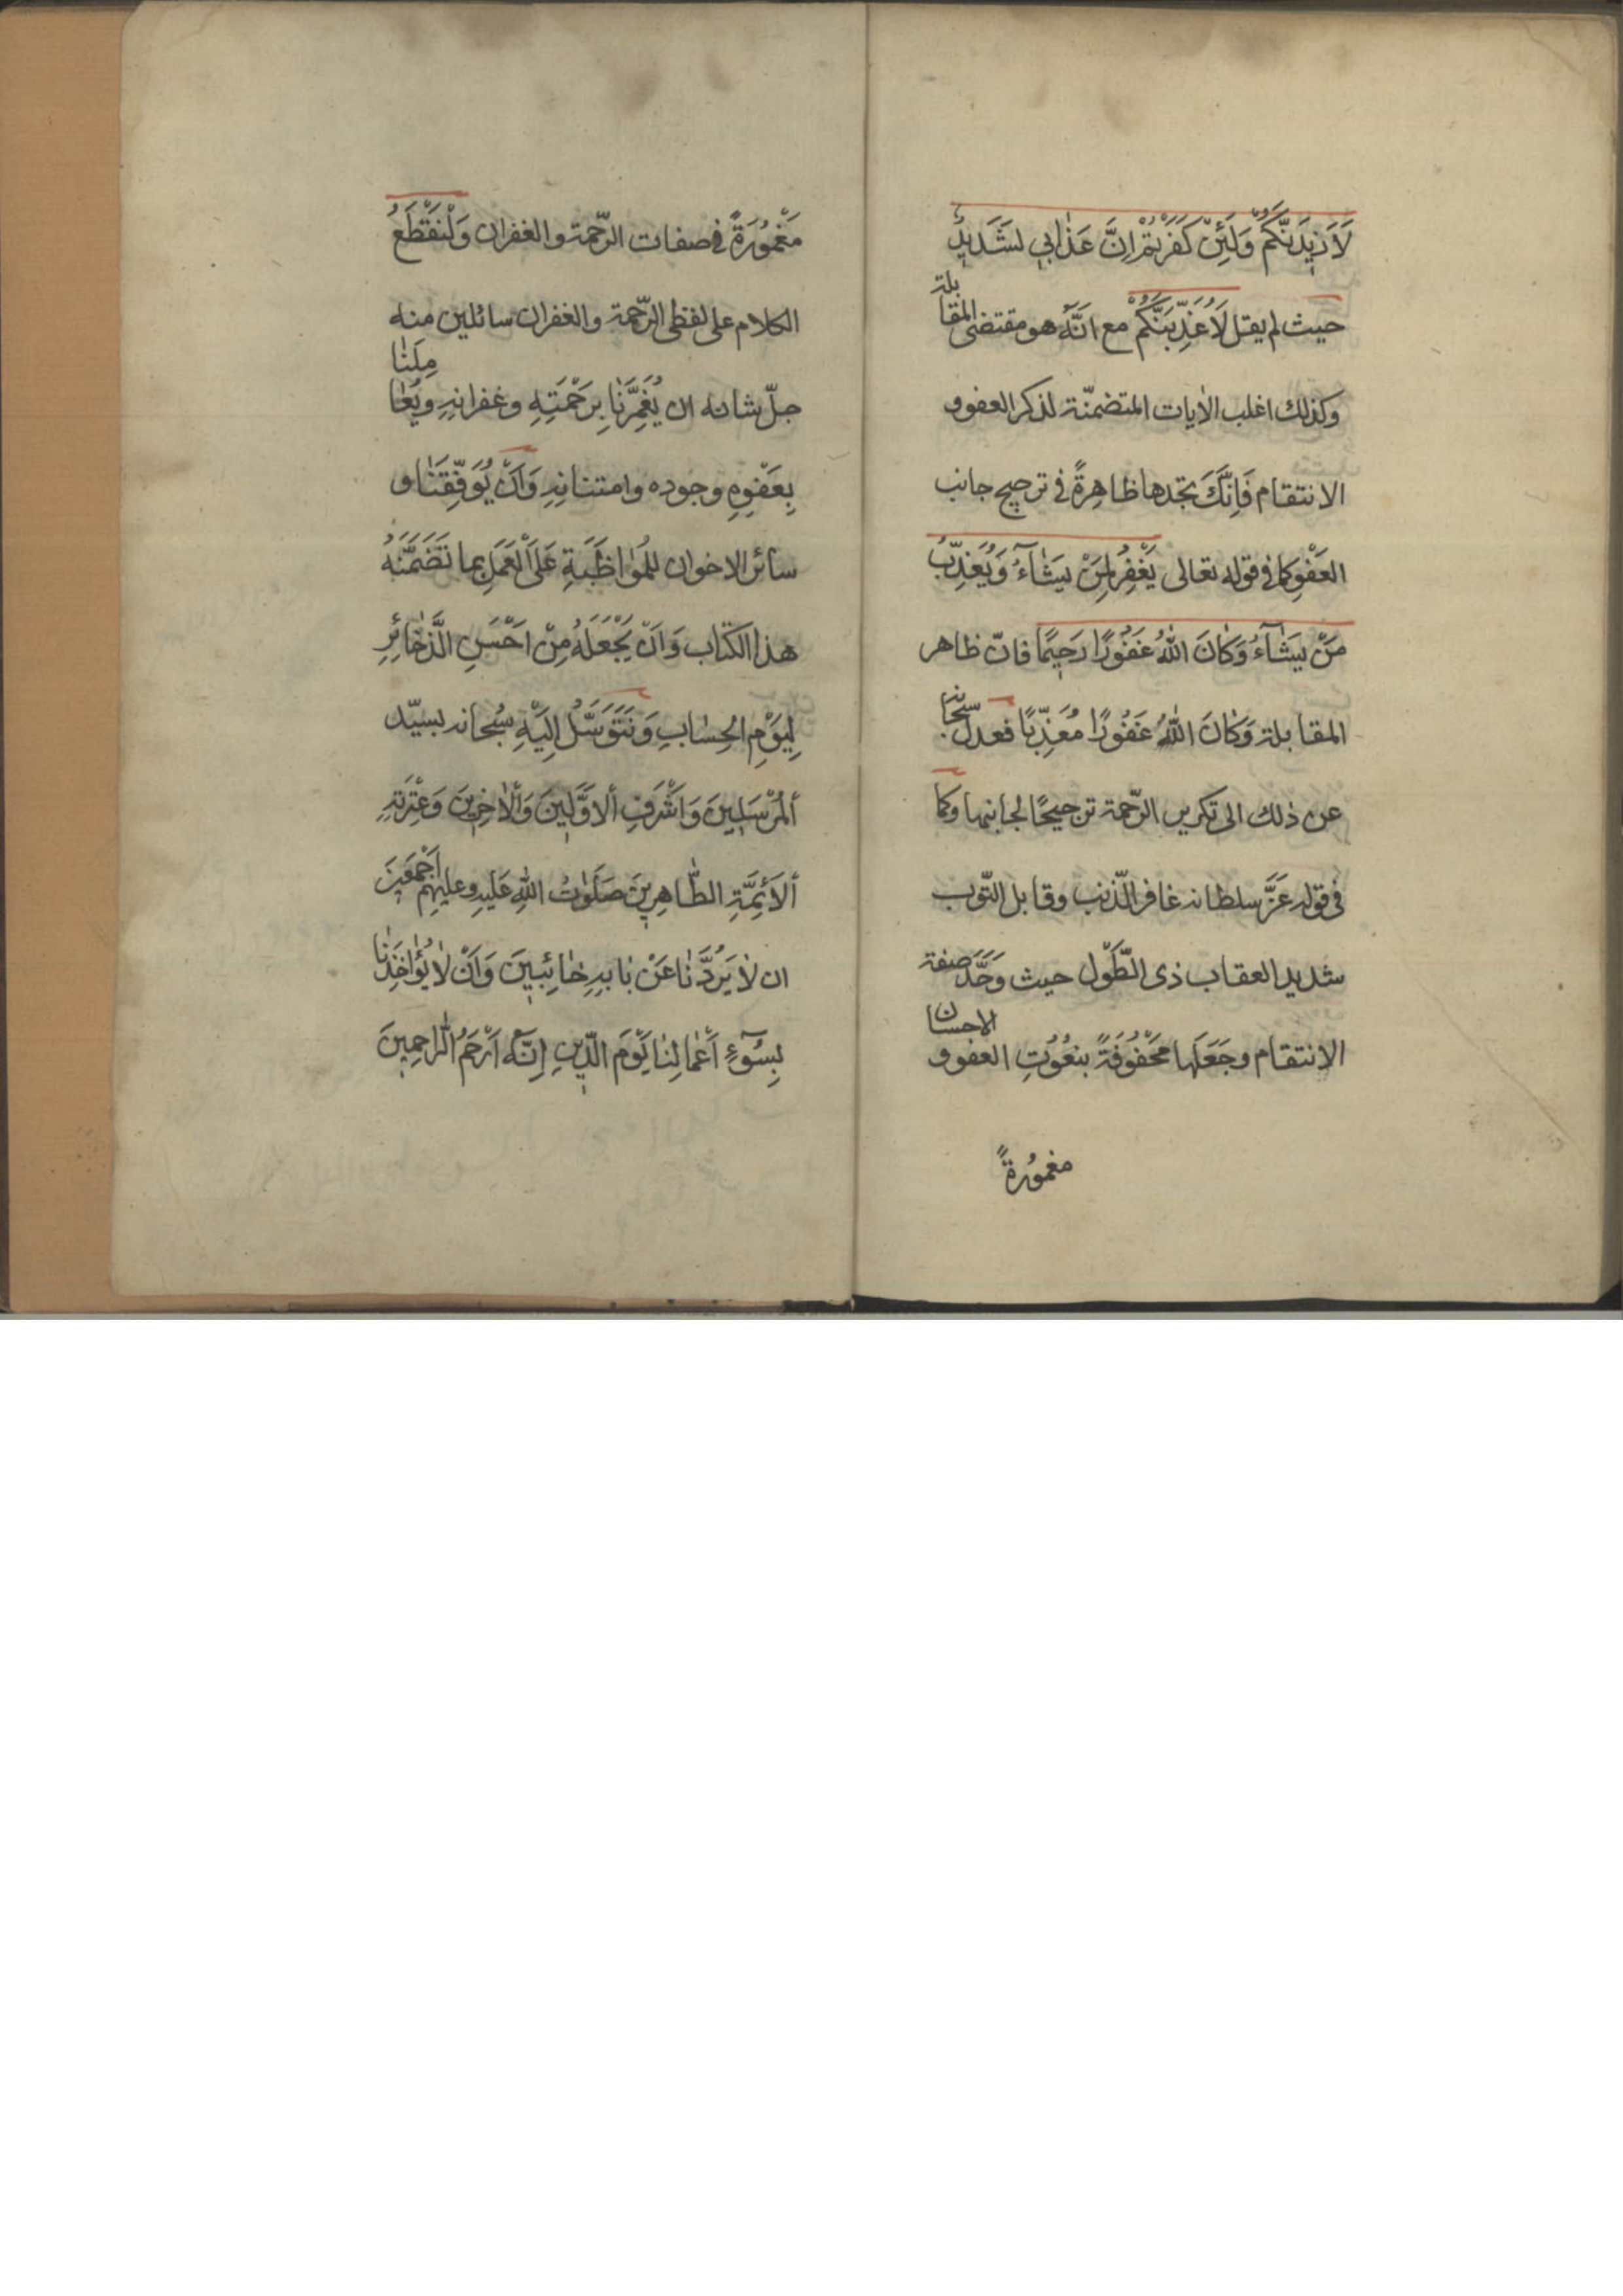 لَاَزِيدَنَّكُمْ وَلَئِنْ كَفَرْتُمْ اِنَّ عَذٰابِي لَشَدِيدٌ
حيث لم يقل لَاُعَذِّبَنَّكُمْ مع انَّهُ هو مقتضى المقابلة
وكذلك اغلب الايات المتضمنّة لذكر العفو و
الانتقام فَاِنَّكَ تجدها ظاهِرةً في ترجيح جانب
العَفْوِ كما في قوله تعالى يَغْفِرُ لِمَنْ يَشٰآءُ وَيُعَذِّبُ
مَنْ يَشٰآءُ وَكٰانَ اللّٰهُ غَفُورًا رَحِيمًا فانّ ظاهر
المقابلة وَكٰانَ اللّٰهُ غَفُورًا مُعَذِّبًا فعدل سبحانه
عن ذلك الى تكرير الرّحمة ترجيحًا لجانبها وكما
في قوله عَزَّ سلطانه غافر الذّنب وقابل التّوب
شديد العقاب ذى الطَّوْل حيث وَحَّدَ صفة
الانتقام وجَعَلَها مَحْفُوفَةً بنعُوُتِ العفو و الاحسان
مغموُرةً
مَغْموُرَةً في صفات الرّحمة والغفران وَلْنَقْطَعُ
الكلام على لفظى الرّحمة والغفران سائلين منه
جلّ شانه ان يُغَمِّرَنٰا بِرَحْمَتِهِ وغفرانِهِ ويُعٰامِلَنٰا
بِعَفْوِهِ وجوده وامتنانِهِ وَاَنْ يُوَفِّقَنٰا و
سائر الاخوان للمُوٰاظَبَةِ عَلَى الْعَمَلِ بما تَضَمَّنَهُ
هذا الكتاب وَاَنْ يَجْعَلَهُ مِنْ اَحْسَنِ الَّذخٰائِرِ
لِيَوْمِ الحِسٰابِ وَنَتَوَسَّلُ اِلَيْهِ سُبْحانه بسيّد
اَلْمُرْسَلِينَ وَاَشْرَفِ اَلاَوَّلِينَ وَاْلاٰخِرِينَ وَعِتْرَتِهِ
اَلاَئِمَّةِ الطّٰاهِرِينَ صَلَوٰاتُ اللّٰهِ عَلَيهِ وعليهِم اَجْمَعِينَ
ان لاٰ يَرُدَّنٰا عَنْ بٰابِهِ خٰائِبِينَ وَاَنْ لاٰ يُؤٰاخِذَنٰا
بِسُوۤءِ اَعْمٰالِنٰا يَوْمَ الدّينِ اِنَّهُ اَرْحَمُ الرّاحِمِينَ